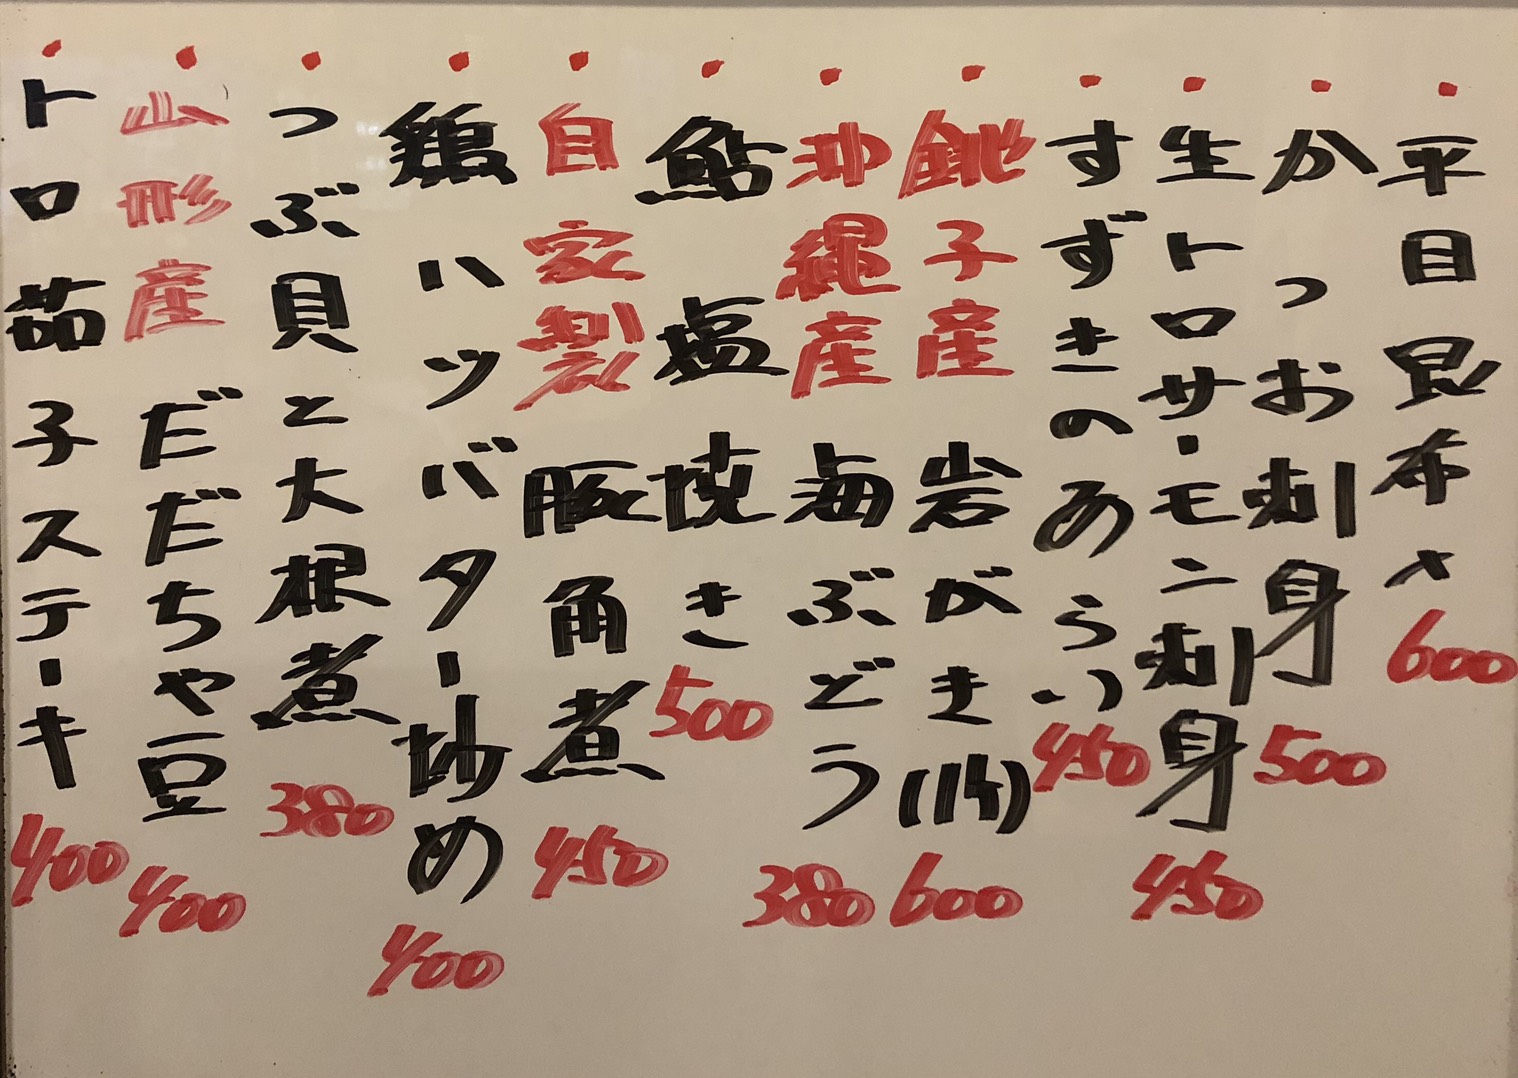 ・平目昆布〆600
・かつお刺身500
・生トロサーモン刺身450
・すずきのあらい450
・銚子産岩がき(1ヶ)600
・沖縄産海ぶどう380
・鮎塩焼き500
・自家製豚角煮450
・鶏ハツバター炒め400
・つぶ貝と大根煮380
・山形産だだちゃ豆400
・トロ茄子ステーキ400